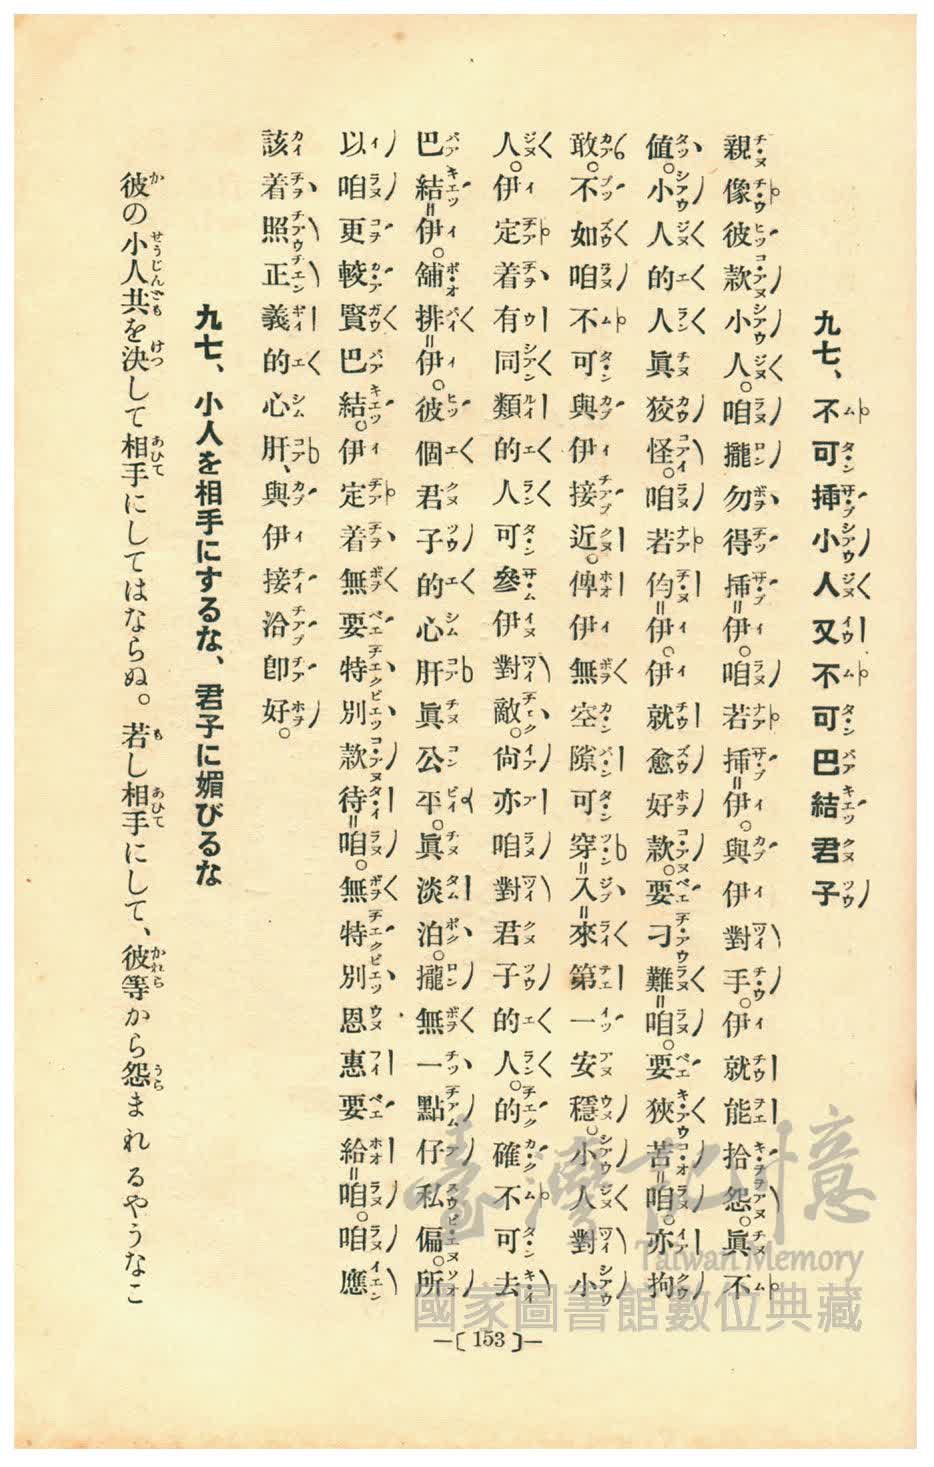 九七、不可揷小人又不可巴結君子
親像彼款小人。咱攏勿得揷伊。咱若揷伊。與伊對手。伊就能拾怨。眞不
値。小人的人眞狡怪。咱若㑹伊。伊就愈好款。要刁難咱。要狹苦咱。亦拘
敢。不如咱不可與伊接近。俾伊無空隙可穿入來。第一安穩。小人對小
人。伊定着有同類的人可參伊對敵。尙亦咱對君子的人。的確不可去
巴結伊。舖排伊。彼個君子的心肝眞公平。眞淡泊。攏無一點仔私偏。所
以咱更較賢巴結。伊定着無要特別款待咱。無特別恩惠要給咱。咱應
該着照正義的心肝、與伊接洽卽好。
九七、小人を相手にするな、君子に媚びるな
彼の小人共を決して相手にしてはならぬ。若し相手にして、彼等から怨まれるやうなこ
—〔153〕—
臺灣記憶
Taiwan Memory
國家圖書館數位典藏